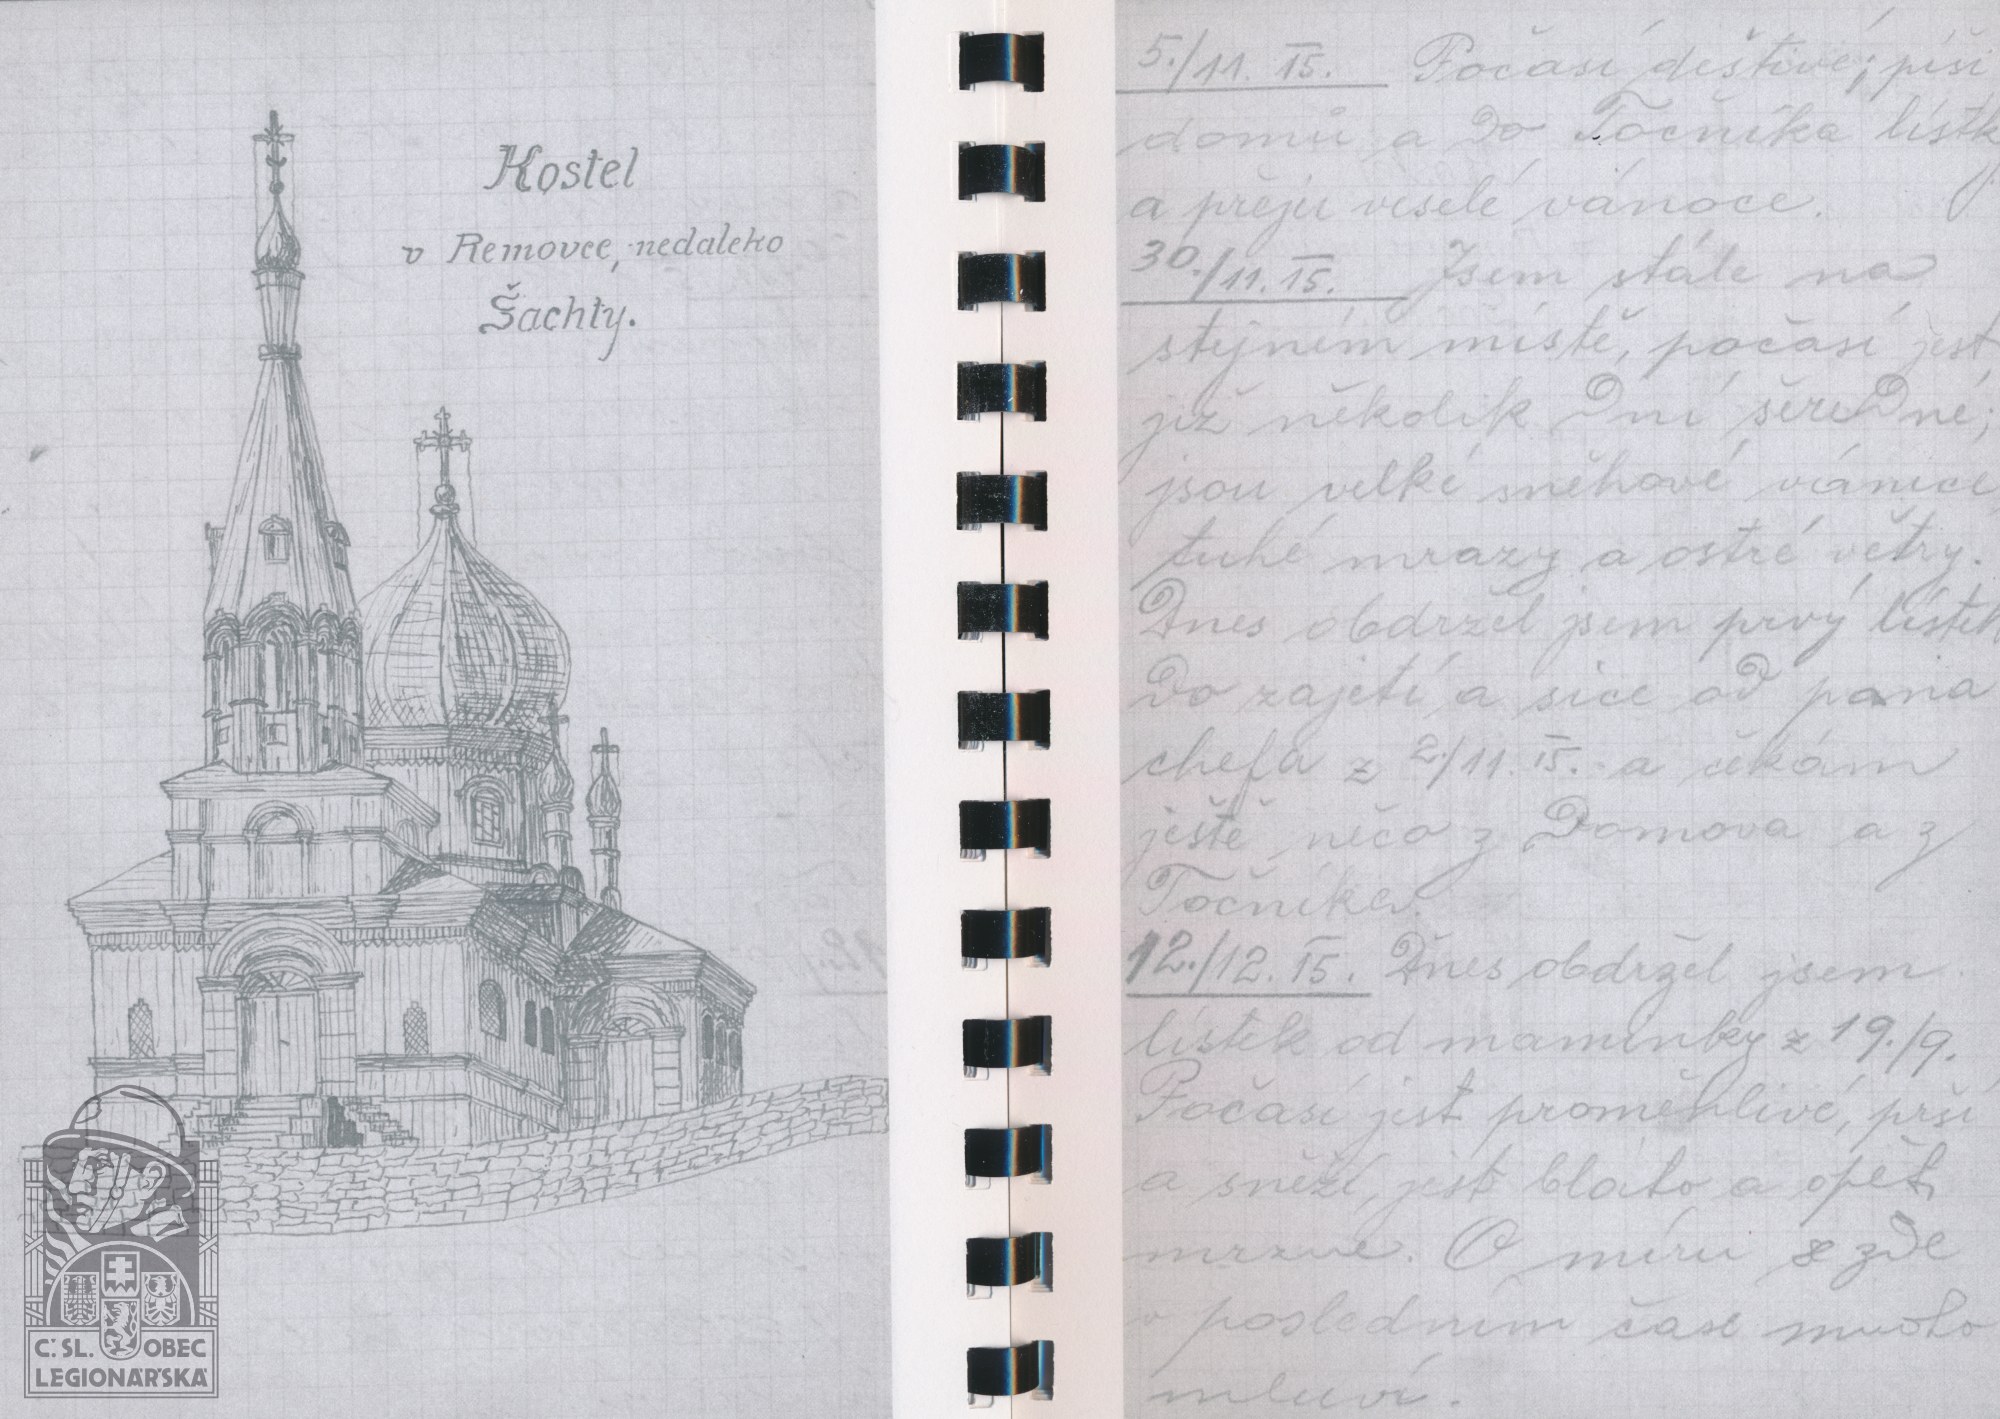 Kostel
v Removce, nedaleko
Šachty.
Č.SL. OBEC
LEGIONÁŘSKÁ
5./11. 15. Počasí deštivé; píši
domů a do Točníka lístky
a přeju veselé vánoce.
30./11. 15. Jsem stále na
stejném místě, počasí jest
již několik dní šeredné;
jsou velké sněhové vánice
tuhé mrazy a ostré větry.
Dnes obdržel jsem prvý lístek
do zajetí a sice od pana
chefa z 2/11. 15. a čekám
ještě něco z Domova a z
Točníka.
12./12. 15. Dnes obdržel jsem
lístek od maminky z 19./9.
Počasí jest proměnlivé, prší
a sněží, jest bláto a opět
mrzne. O míru se zde
v posledním čase mnoho
mluví.